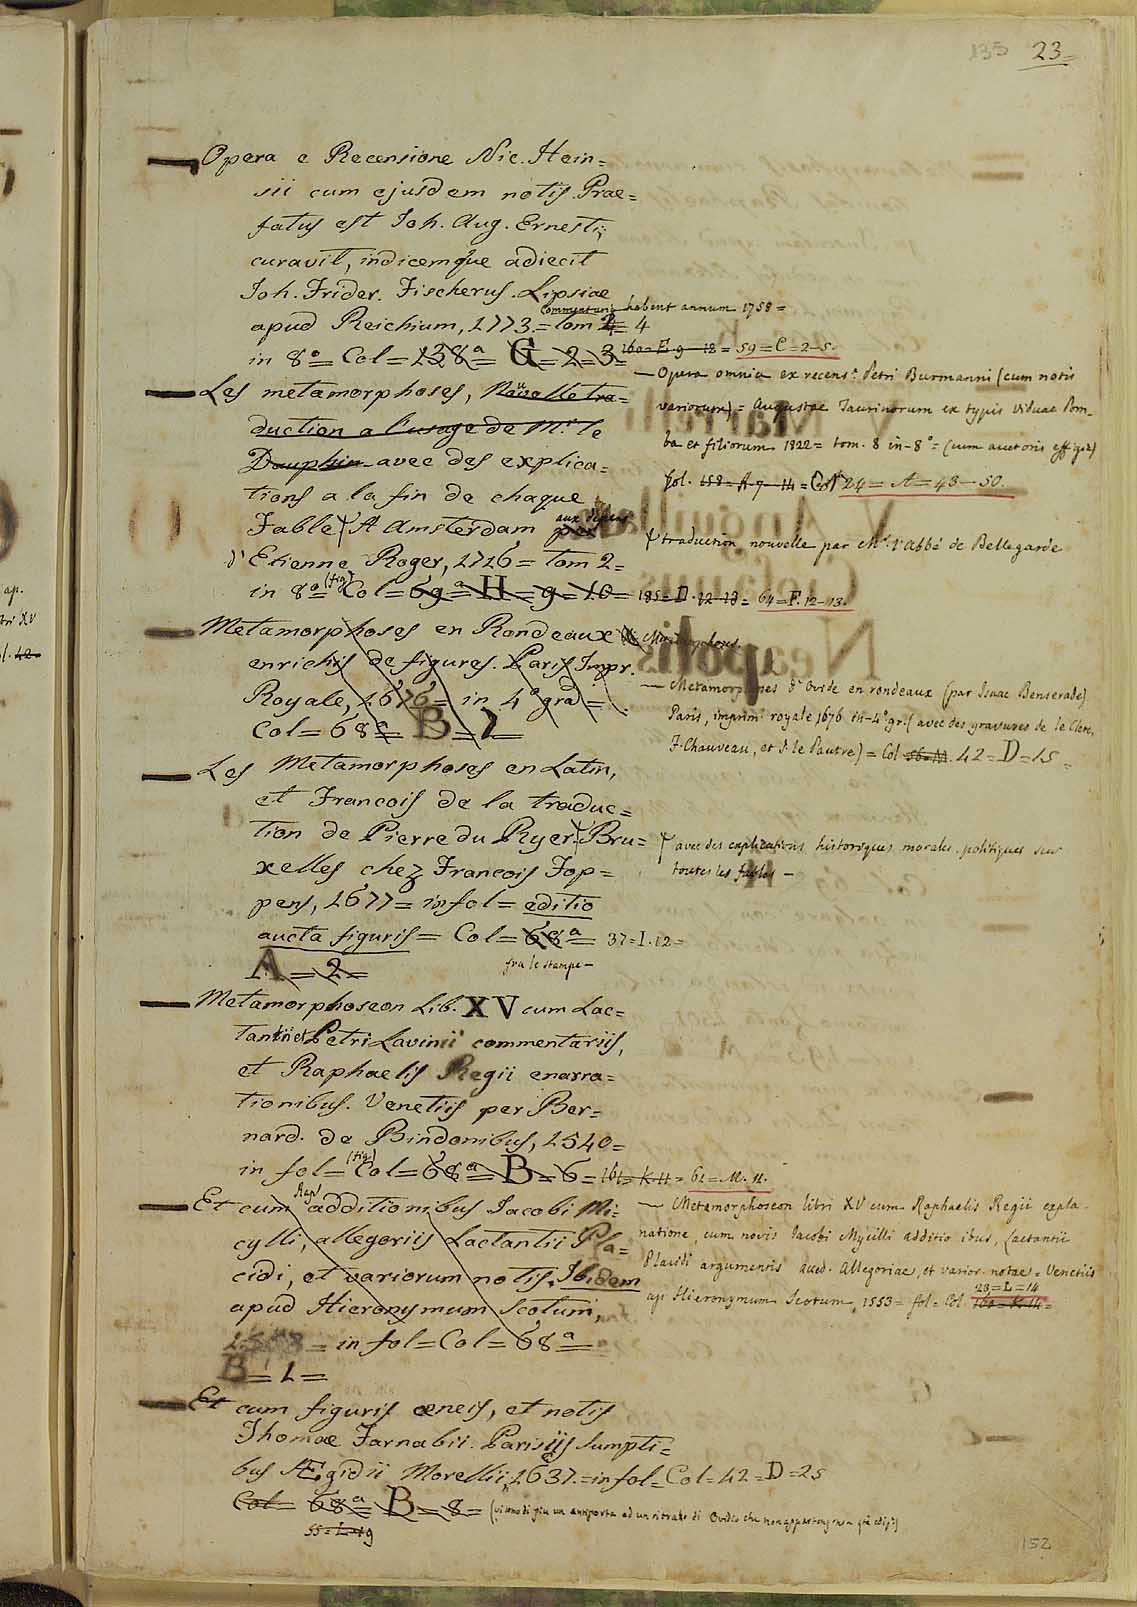 135 23=
Opera e Recensione Nic. Hein=
sii cum ejusdem notis. Prae=
fatus est Joh. Aug. Ernesti;
curavit, indicemque adiecit
Joh. Frider. Fischerus. Lipsiae
commentarii habent annum 1758=
apud Reichium, 1773.=tom 4
in 8°= Col=138ª G=2=3=
59=C=2-5.
— Opera omnia ex recens.e Petri Burmanni (cum notis
variorum)= Augustae Taurinorum ex typis Viduae Pom-
ba et filiorum 1822= tom. 8 in-8°= (cum auctoris effigie)
fol. 158=A-7-14= Col 24=A=48-50.
Les metamorphoses, Nouvelle tra=
duction a l'usage de Mr. le
Dauphin avec des explica=
tions a la fin de chaque
Fable A Amsterdam aux depens
d'Etienne Roger, 1716= tom 2=
in 8°= (fig.) Col=69ª=H=9=10= 185=D.12-13= 64=F.12-13.
traduction nouvelle par Mr. l'Abbé de Bellegarde
Metamorphoses en Rondeaux
enrichis de figures. Paris Impr.
Royale, 1676= in 4° grd=
Col=68ª B=1
— Metamorphoses d'Ovide en rondeaux (par Isaac Benserade)
Paris, imprim. royale 1676 in-4° gr. (avec des gravures de le Clerc,
F. Chauveau, et J. le Pautre)= Col 42=D=15=
Les Metamorphoses en Latin,
et Francois de la traduc=
tion de Pierre du Ryer. Bru=
xelles chez Francois Fop=
pens, 1677= in fol= editio
aucta figuris= Col=68ª= 37=I.12=
A=2= fra le stampe—
avec des explications historiques morales politiques sur
toutes les fables —
Metamorphoseon Lib. XV cum Lac=
tantii et Petri Lavinii commentariis,
et Raphaelis Regii enarra=
tionibus. Venetiis per Ber=
nard. de Bindonibus, 1540=
in fol= (fig.) Col=68ª=B=6= 161=K.11= 61=M.11.
Et cum additionibus Jacobi Mi=
cylli, allegoriis Lactantii Pla=
cidi, et variorum notis. Ibidem
apud Hieronymum Scotum,
= in fol=Col=68ª=
B=1=
— Metamorphoseon libri XV cum Raphaelis Regii expla-
natione, cum novis Jacobi Mycilli additionibus, Lactantii
Placidi argumentis acced. Allegoriae, et varior. notae= Venetiis
ap. Hieronymum Scotum, 1553= fol= Col. 161=K.14=
23=L=14
Et cum figuris aeneis, et notis
Thomae Farnabii. Parisiis sumpti=
bus Ægidii Morellii, 1637.=in fol=Col=42=D=25
Col= 68ª B=8=
55=L=19
152